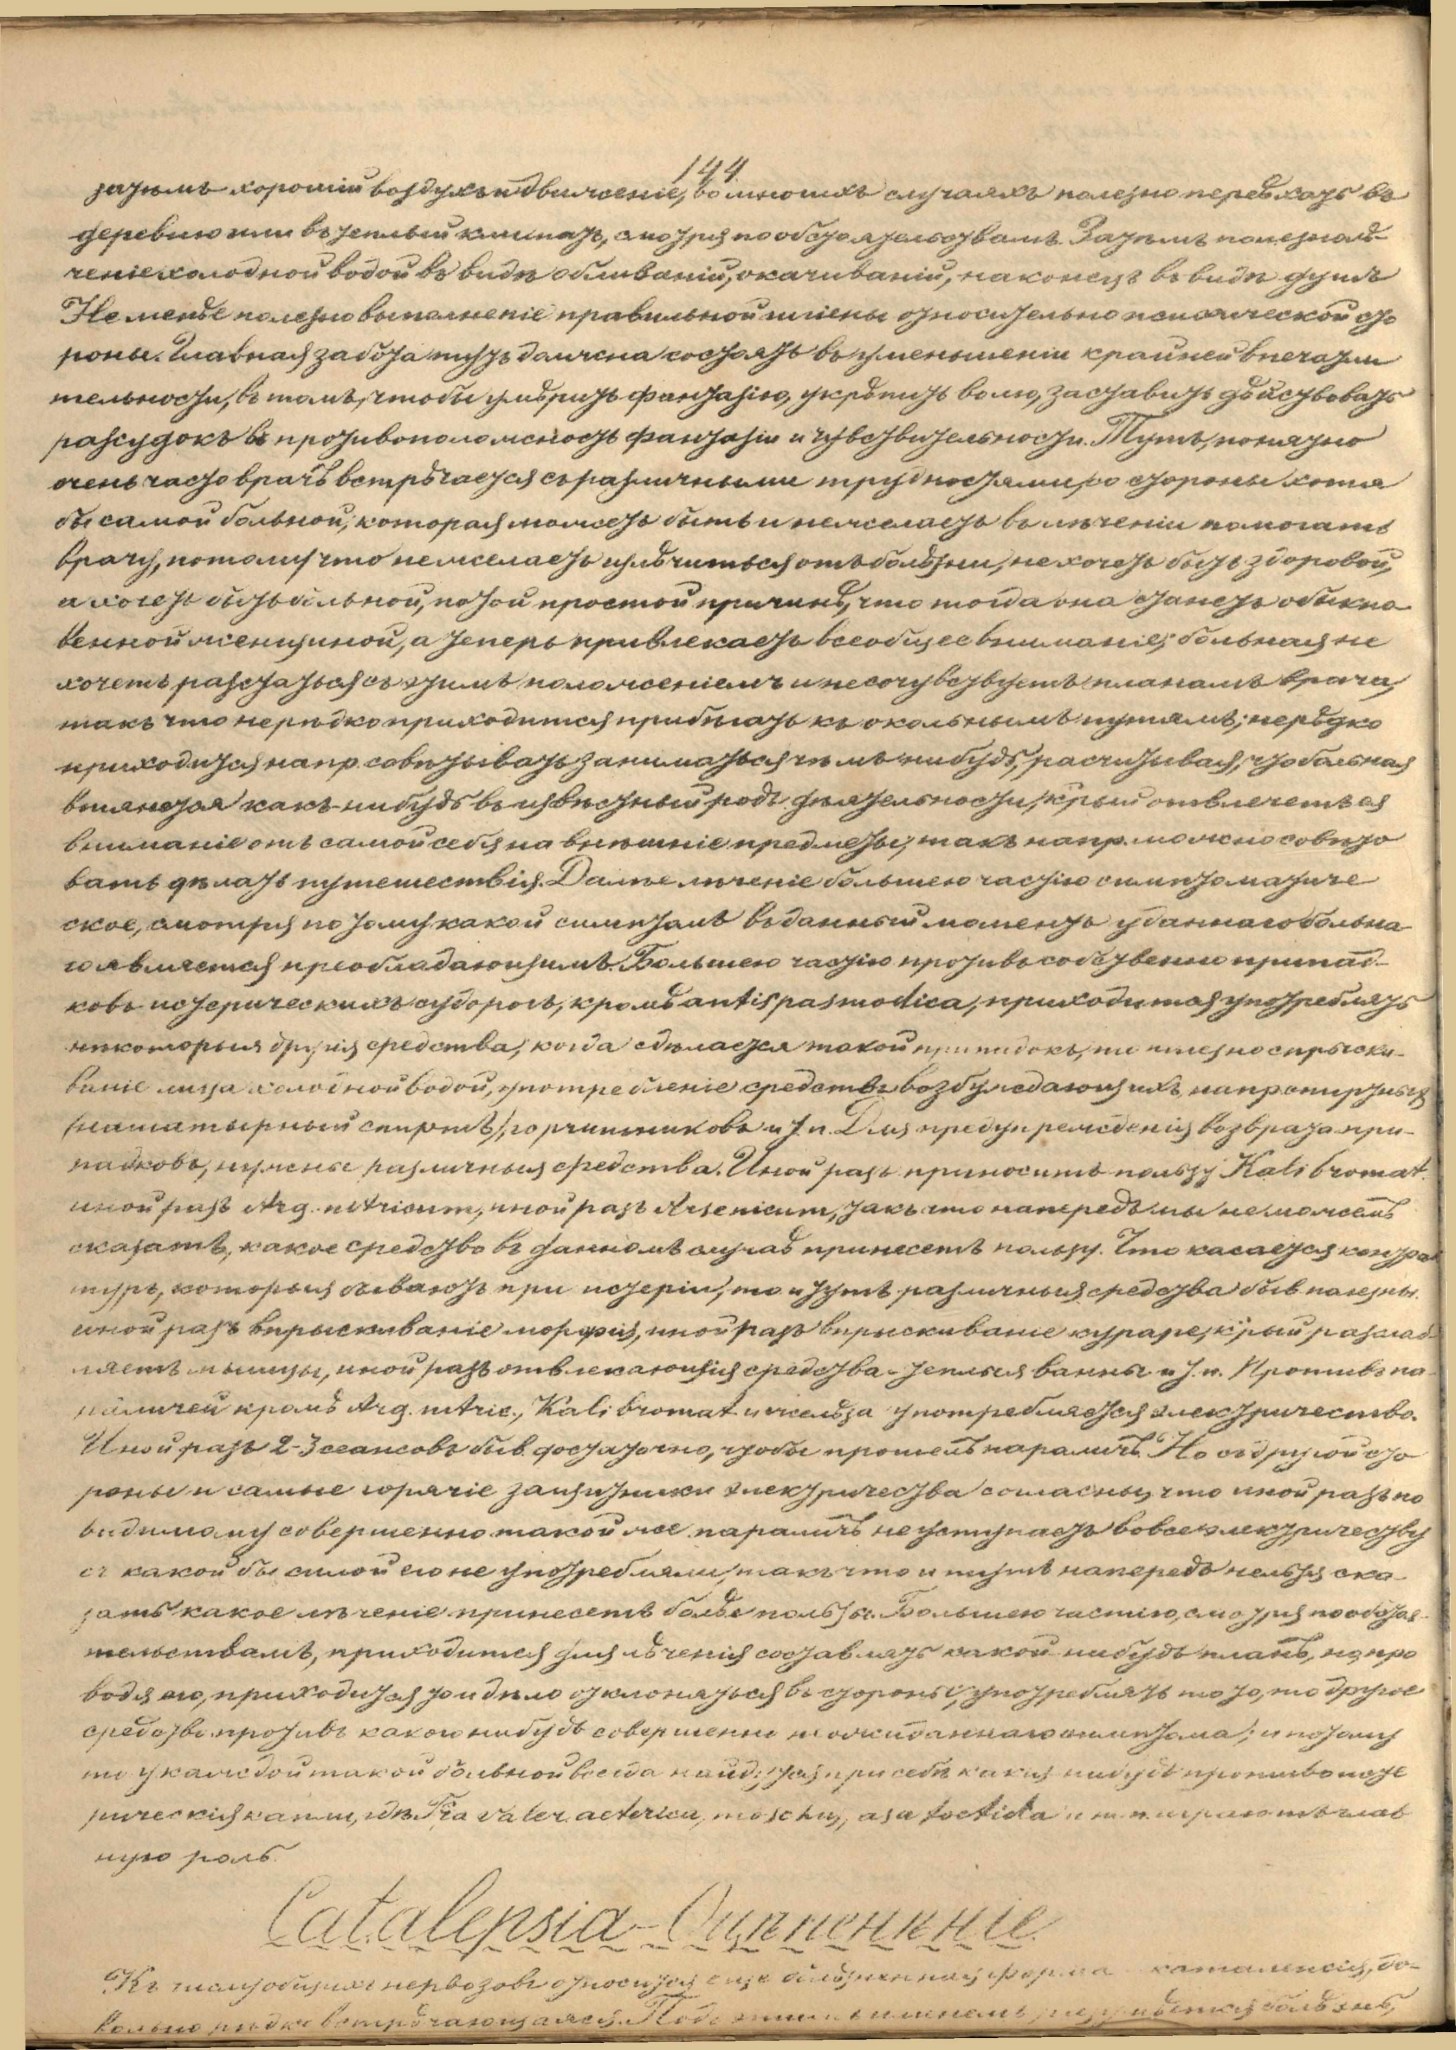 144.
затѣмъ хорошій воздухъ и движеніе, во многихъ случаяхъ полезно переѣхать въ
деревню или въ теплый климатъ, смотря по обстоятельствамъ. Затѣмъ полезно лѣ-
ченіе холодной водой въ видѣ обливаній, окачиваній, наконецъ въ видѣ душъ
Не менѣе полезно выполненіе правильной гигіены относительно психической сто
роны. Главная забота тутъ должна состоять въ уменьшеніи крайней впечатли
тельности, въ томъ, чтобы умѣрить фантазію, укрѣпить волю, заставить дѣйствовать
разсудокъ въ противоположность фантазіи и чувствительности. Тутъ, понятно
очень часто врачъ встрѣчается съ различными трудностями, со стороны хотя
бы самой больной, которая можетъ быть и не желаетъ въ лѣченіи помогать
врачу, потому что не желаетъ излѣчиться отъ болѣзни, не хочетъ быть здоровой,
а хочетъ быть больной, по той простой причинѣ, что тогда она станетъ обыкно
венной женщиной, а теперь привлекаетъ всеобщее вниманіе; больная не
хочетъ разстаться съ этимъ положеніемъ и несочувствуетъ планамъ врача,
такъ что нерѣдко приходится прибѣгать къ окольнымъ путямъ; нерѣдко
приходится напр. совѣтывать заниматься чѣмъ нибудь, расчитывая, что больная
втянется какъ нибудь въ извѣстный родъ дѣятельности, к̃рый отвлечетъ ея
вниманіе отъ самой себя на внѣшніе предметы; такъ напр. можно совѣто
вать дѣлать путешествія. Далѣе лѣченіе большею частію симптоматиче
ское, смотря по тому какой симптомъ въ данный моментъ у даннаго больна
го является преобладающимъ. Большею частію противъ собственно припад-
ковъ истерическихъ судорогъ, кромѣ antispasmodica, приходится употреблять
нѣкоторыя другія средства; когда сдѣлается такой припадокъ, то полезно спрыски-
ваніе лица холодной водой, употребленіе средствъ возбуждающихъ, напр. спиртныя
(нашатырный спиртъ), горчишниковъ и т. п. Для предупрежденія возврата при-
падковъ, нужны различныя средства. Иной разъ приноситъ пользу Kali bromat.
иной разъ Arg. nitricum, иной разъ Arsenicum, такъ что напередъ мы не можемъ
сказать, какое средство въ данномъ случаѣ принесетъ пользу. Что касается контрак
туръ, которыя бываютъ при истеріи, то и тутъ различныя средства быв. полезны.
иной разъ впрыскиваніе морфія, иной разъ впрыскиваніе кураре, к̃рый разслаб
ляетъ мышцы, иной разъ отвлекающія средства - теплыя ванны и т. п. Противъ па
раличей кромѣ Arg. nitric., Kali bromat. и желѣза употребляется электричество.
Иной разъ 2-3 сеансовъ быв. достаточно, чтобы прошелъ параличъ. Но съ другой сто
роны и самые горячіе защитники электричества согласны, что иной разъ по
видимому совершенно такой же параличъ не уступаетъ вовсе электричеству
съ какой бы силой его не употребляли, такъ что и тутъ напередъ нельзя ска-
зать какое лѣченіе принесетъ болѣе пользы. Большею частію, смотря по обстоя-
тельствамъ, приходится для лѣченія составлять какой нибудь планъ, но про
водя его, приходится то и дѣло отклоняться въ стороны, употреблять то то, то другое
средство противъ какого нибудь совершенно неожиданнаго симптома; и потому
то у каждой такой больной всегда найдутся при себѣ какія нибудь противоисте
рическія капли, гдѣ Tra valer. aeterica, moschus, asa foetida и т. п. играютъ глав
ную роль.
Catalepsia - Оцѣпенѣніе.
Къ числу общихъ нервозовъ относится еще болѣзненная форма каталепсія, до-
вольно рѣдко встрѣчающаяся. Подъ этимъ именемъ разумѣется болѣзнь,